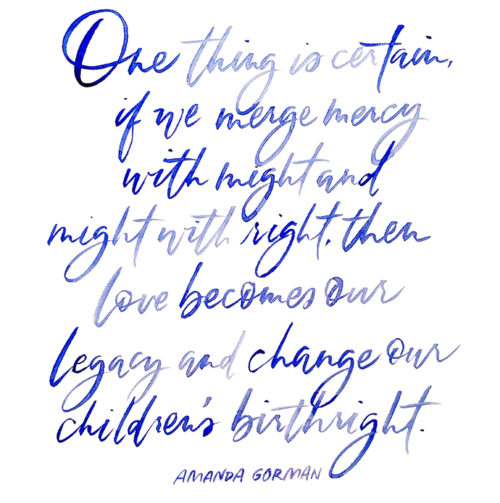 One thing is certain,
if we merge mercy
with might and
might with right, then
love becomes our
legacy and change our
children's birthright.
AMANDA GORMAN